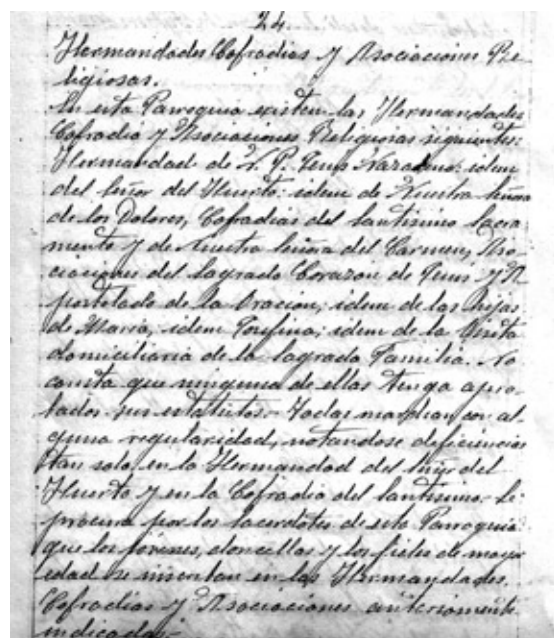 24.
Hermandades Cofradias y Asociaciones Re-
ligiosas.
En esta Parroquia existen las Hermandades
Cofradia y Asociaciones Religiosas siguientes:
Hermandad de N. P. Jesus Nazareno: idem
del Señor del Huerto: idem de Nuestra Señora
de los Dolores, Cofradias del Santisimo Sacra
mento y de Nuestra Señora del Carmen, Aso-
ciaciones del Sagrado Corazon de Jesus y A
postolado de la Oracion; idem de las hijas
de Maria, idem Josefina; idem de la Visita
domiciliaria de la Sagrada Familia. No
consta que ninguna de ellas tenga apro-
bados sus estatutos. Todas marchan con al-
guna regularidad, notandose deficiencias
tan solo en la Hermandad del Señor del
Huerto y en la Cofradia del Santisimo. Se
procura por los sacerdotes de esta Parroquia
que los jovenes, doncellas y los fieles de mayor
edad se inscriban en las Hermandades,
Cofradias y Asociaciones anteriormente
indicadas.-